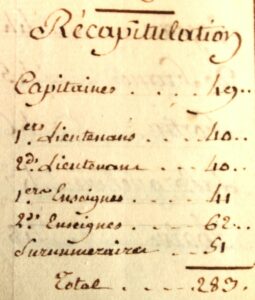 Récapitulation
Capitaines . . . . 49..
1ers Lieutenans . . . 40..
2ds Lieutenans . . . 40..
1ers Enseignes . . . 41
2ds Enseignes . . . . 62..
Surnumeraires . . 51
Total . . . . 283.